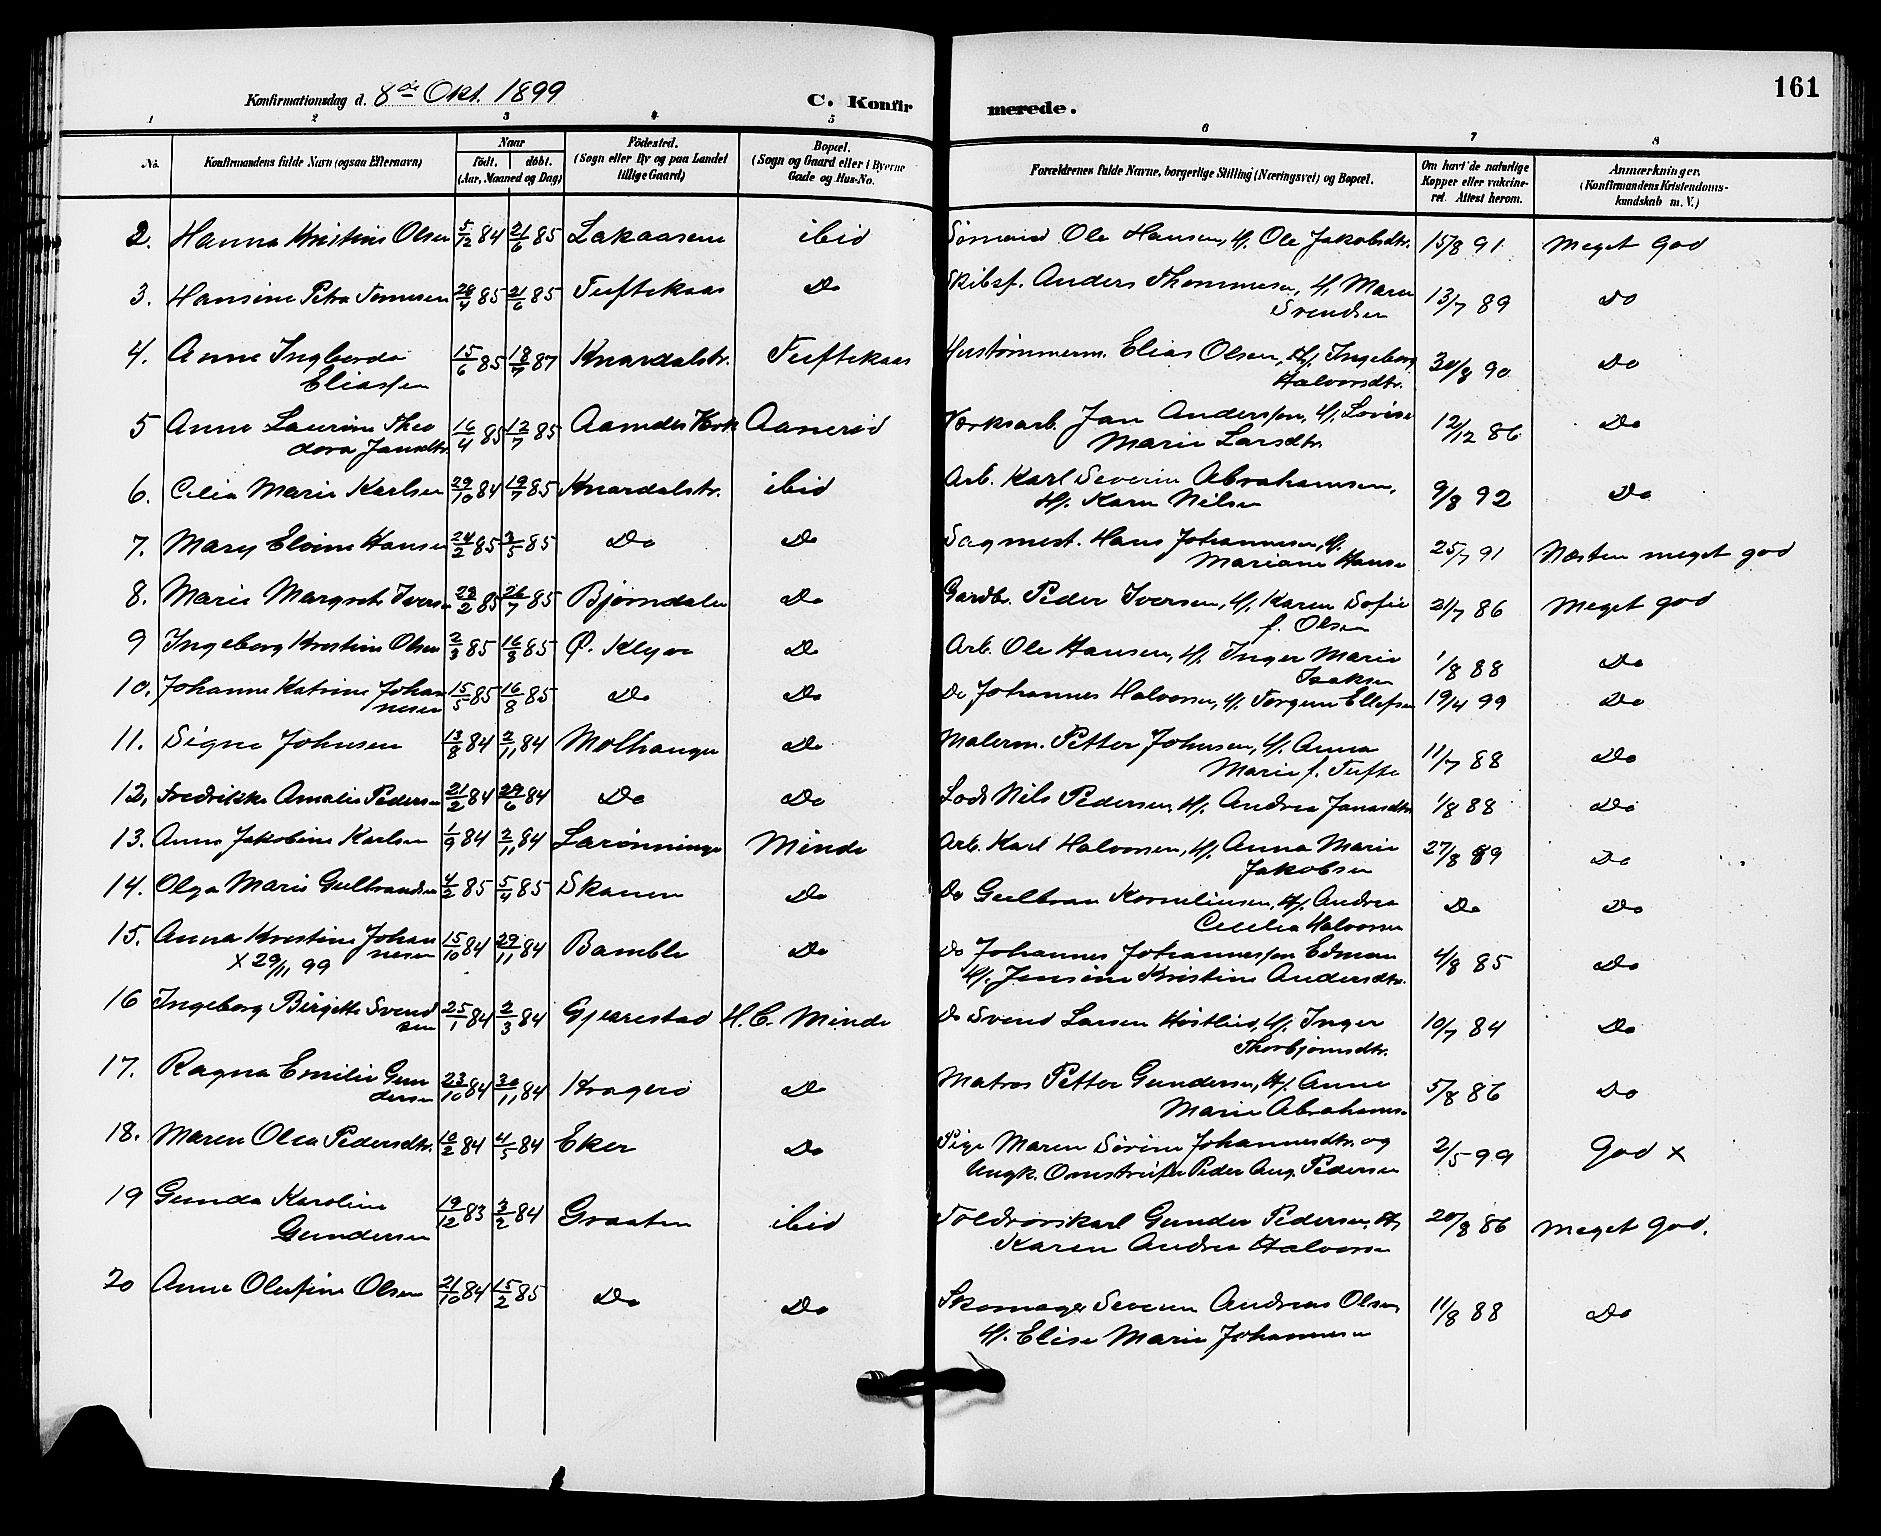 161
Konfirmationsdag d. 8de Okt. 1899 C. Konfirmerede.
1 2 3 4 5 6 7 8
No. Konfirmandens fulde Navn (ogsaa Efternavn) Naar födt. döbt. (Aar, Maaned og Dag) Födested. (Sogn eller By og paa Landet tillige Gaard) Bopæl. (Sogn og Gaard eller i Byerne Gade og Hus-No. Forældrenes fulde Navne, borgerlige Stilling (Næringsvei) og Bopæl. Om havt de naturlige Kopper eller vakcineret. Attest herom. Anmærkninger. (Konfirmandens Kristendomskundskab m. V.)
2. Hanna Kristine Olsen 5/12 84 21/6 85 Lakaasene ibid Sömand Ole Hansen, H/. Ole Jakobsdtr. 15/8 91 Meget god
3. Hansine Petra Tomesen 28/4 85 21/6 85 Tuftekaas Do Skibsf. Anders Thommesen, H/. Maren
Svendsen 13/7 89 Do
4. Anne Ingborda
Eliassen 15/6 85 18/7 87 Knardalstr. Tuftekaas Hustømmerm. Elias Olsen, H/. Ingeborg
Halvorsdtr. 30/8 90 Do
5 Anne Laurine Theo
dora Jansdtr. 16/4 85 12/7 85 Aamdes Værk Aanerød Værksarb. Jan Anderssen, H/. Lovise
Marie Larsdtr. 12/12 86 Do
6. Celia Marie Karlsen 29/10 84 19/7 85 Knardalstr. ibid Arb. Karl Severin Abrahamsen,
H/. Karn Nilsen 9/8 92 Do
7. Mary Elvine Hansen 24/2 85 3/5 85 Do Do Sagmest. Hans Johannesen, H/.
Mariane Hanse 25/7 91 Næsten meget god
8. Marie Margrete Iversen 28/2 85 26/7 85 Bjørndalen Do Gardbr. Peder Iversen, H/. Karen Sofie
f. Olsen 21/7 86 Meget god
9 Ingeborg Kristine Olsen 2/3 85 16/8 85 Ø. Klyve Do Arb. Ole Hansen, H/. Inger Marie
Isaksen 1/8 88 Do
10. Johanne Katrine Johan
nesen 15/5 85 16/8 85 Do Do Do Johannes Halvorsen, H/. Torgine Ellefsen 19/4 99 Do
11. Signe Johnsen 13/8 84 2/11 84 Molhaugen Do Malerm. Petter Johnsen, H/. Anna
Marie f. Tufte 11/7 88 Do
12, Fredrikke Amalie Pedersen 21/2 84 29/6 84 Do Do Lods Nils Pedersen, H/. Andrea Jansdtr. 1/8 88 Do
13. Anna Jakobine Karlsen 1/9 84 2/11 84 Larønninge Minde Arb. Karl Halvorsen, H/. Anna Marie
Jakobsen 27/8 89 Do
14. Olga Marie Gulbrandsen 4/2 85 5/4 85 Skauen Do Do Gulbran Korneliusen, H/. Andrea
Cecilia Halvorsen Do Do
15. Anna Kristine Johan
nesen 15/10 84 29/11 84 Bamble Do Do Johannes Johannessen Edman
X 29/11 99 H/. Jensine Kristine Andersdtr. 4/8 85 Do
16 Ingeborg Birgitte Svend
sen 25/1 84 2/3 84 Gjerrestad H. C. Minde Do Svend Larsen Høstlid, H/. Inger
Thorbjørnsdtr. 10/7 84 Do
17. Ragna Emilie Gun
dersen 23/10 84 30/11 84 Kragerö Do Matros Petter Gundersen, H/. Anne
Marie Abrahams 5/8 86 Do
18. Maren Olea Pedersdtr. 10/2 84 4/5 84 Eker Do Pige Maren Sörine Johannesdtr. og
Ungk. Peder Aug. Pedersen 2/5 99 God x
19 Gunda Karoline
Gundersen 19/12 83 3/2 84 Graaten ibid Toldrorskarl Gunder Pedersen, H/
Karen Andrea Halvorsen 20/8 86 Meget god.
20 Anne Olufine Olsen 21/10 84 15/2 85 Do Do Skomager Severin Andreas Olsen
H/. Elise Marie Johannesen 11/8 88 Do